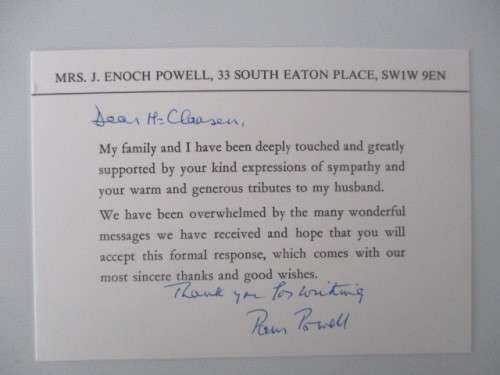 MRS. J. ENOCH POWELL, 33 SOUTH EATON PLACE, SW1W 9EN
Dear Mr Claasen,
My family and I have been deeply touched and greatly
supported by your kind expressions of sympathy and
your warm and generous tributes to my husband.
We have been overwhelmed by the many wonderful
messages we have received and hope that you will
accept this formal response, which comes with our
most sincere thanks and good wishes.
Thank you for writing
Pam Powell